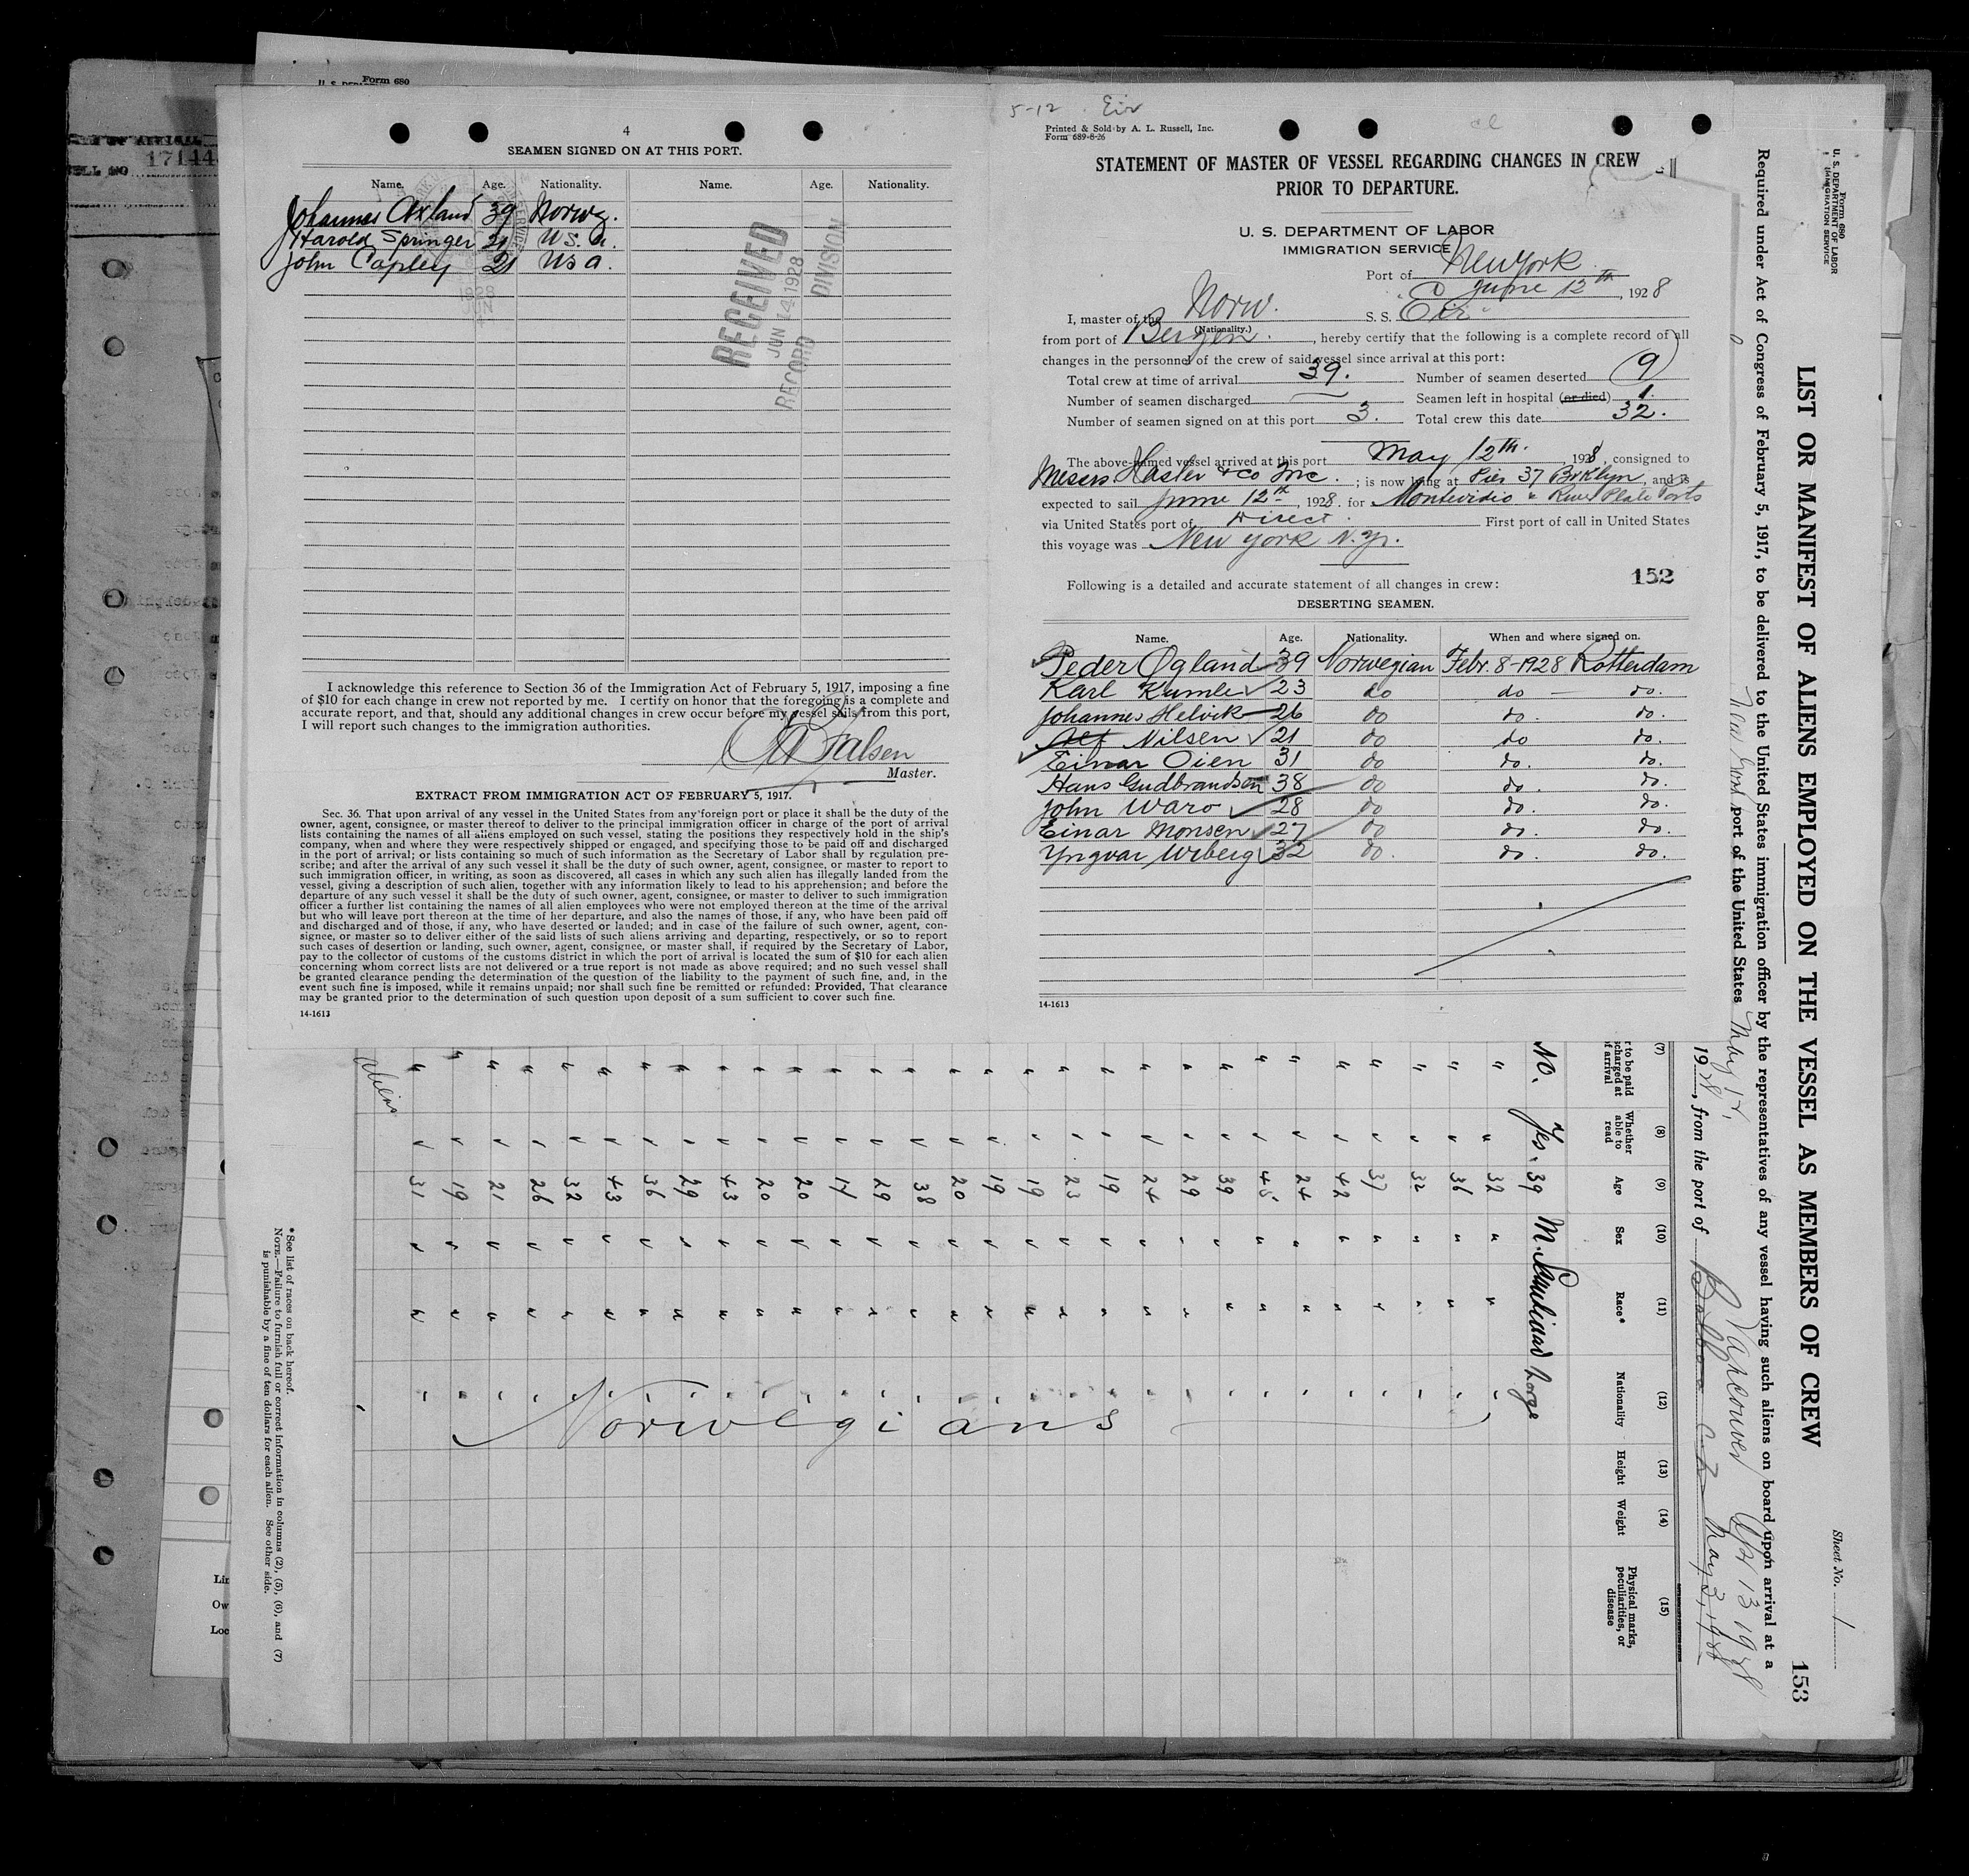 Form 680
4
SEAMEN SIGNED ON AT THIS PORT.
Name. Age. Nationality. Name. Age. Nationality.
Johannes Axland 39 Norwg.
Harold Springer 21 U.S.A.
John Copley 21 USA.
1928
JUN
RECEIVED
JUN 14 1928
RECORD DIVISION
I acknowledge this reference to Section 36 of the Immigration Act of February 5, 1917, imposing a fine
of $10 for each change in crew not reported by me. I certify on honor that the foregoing is a complete and
accurate report, and that, should any additional changes in crew occur before my vessel sails from this port,
I will report such changes to the immigration authorities.
Falsen
Master.
EXTRACT FROM IMMIGRATION ACT OF FEBRUARY 5, 1917.
Sec. 36. That upon arrival of any vessel in the United States from any foreign port or place it shall be the duty of the
owner, agent, consignee, or master thereof to deliver to the principal immigration officer in charge of the port of arrival
lists containing the names of all aliens employed on such vessel, stating the positions they respectively hold in the ship's
company, when and where they were respectively shipped or engaged, and specifying those to be paid off and discharged
in the port of arrival; or lists containing so much of such information as the Secretary of Labor shall by regulation pre-
scribe; and after the arrival of any such vessel it shall be the duty of such owner, agent, consignee, or master to report to
such immigration officer, in writing, as soon as discovered, all cases in which any such alien has illegally landed from the
vessel, giving a description of such alien, together with any information likely to lead to his apprehension; and before the
departure of any such vessel it shall be the duty of such owner, agent, consignee, or master to deliver to such immigration
officer a further list containing the names of all alien employees who were not employed thereon at the time of the arrival
but who will leave port thereon at the time of her departure, and also the names of those, if any, who have been paid off
and discharged and of those, if any, who have deserted or landed; and in case of the failure of such owner, agent, con-
signee, or master so to deliver either of the said lists of such aliens arriving and departing, respectively, or so to report
such cases of desertion or landing, such owner, agent, consignee, or master shall, if required by the Secretary of Labor,
pay to the collector of customs of the customs district in which the port of arrival is located the sum of $10 for each alien
concerning whom correct lists are not delivered or a true report is not made as above required; and no such vessel shall
be granted clearance pending the determination of the question of the liability to the payment of such fine, and, in the
event such fine is imposed, while it remains unpaid; nor shall such fine be remitted or refunded: Provided, That clearance
may be granted prior to the determination of such question upon deposit of a sum sufficient to cover such fine.
14-1613
5-12 Eir
Printed & Sold by A. L. Russell, Inc.
Form 689-8-26
STATEMENT OF MASTER OF VESSEL REGARDING CHANGES IN CREW
PRIOR TO DEPARTURE.
U. S. DEPARTMENT OF LABOR
IMMIGRATION SERVICE
Port of New York
June 12th, 1928
I, master of the Norw. S. S. Eir
(Nationality.)
from port of Bergen., hereby certify that the following is a complete record of all
changes in the personnel of the crew of said vessel since arrival at this port:
Total crew at time of arrival 39. Number of seamen deserted 9
Number of seamen discharged — Seamen left in hospital (or died) 1.
Number of seamen signed on at this port 3. Total crew this date 32.
The above-named vessel arrived at this port May 12th., 1928, consigned to
Messrs Hasler & Co Inc.; is now lying at Pier 37 Brklyn, and is
expected to sail June 12th, 1928. for Montevidio & River Plate Ports
via United States port of Direct. First port of call in United States
this voyage was New York N.Y.
152
Following is a detailed and accurate statement of all changes in crew:
DESERTING SEAMEN.
Name. Age. Nationality. When and where signed on.
Peder Øgland 39 Norwegian Febr. 8-1928 Rotterdam
Karl Kumle 23 do do — do.
Johannes Helvik 26 do do. do.
Alf Nilsen 21 do do do.
Einar Oien 31 do do. do.
Hans Gudbrandsen 38 do do. do.
John Waro 28 do do. do.
Einar Monsen 27 do do. do.
Yngvar Wiberg 32 do. do. do.
14-1613
Form 680
U. S. DEPARTMENT OF LABOR
IMMIGRATION SERVICE
Sheet No. 1
153
LIST OR MANIFEST OF ALIENS EMPLOYED ON THE VESSEL AS MEMBERS OF CREW
Required under Act of Congress of February 5, 1917, to be delivered to the United States immigration officer by the representatives of any vessel having such aliens on board upon arrival at a
New York port of the United States
Vancouver Apr 13 1928
May 12, 1928, from the port of Balboa C.Z. May 3, 1928
(7) (8) (9) (10) (11) (12) (13) (14) (15)
Whether able to read
Age
Sex
Race*
Nationality
Height
Weight
Physical marks, peculiarities, or disease
No. Yes. 39 M. Scandinav Norge
32
36
32
37
42
24
45
39
29
24
19
23
19
19
20
38
29
17
20
20
43
29
36
43
32
26
21
19
31
Norwegians
aliens
*See list of races on back hereof.
NOTE.—Failure to furnish full or correct information in columns (2), (5), (6), and (7)
is punishable by a fine of ten dollars for each alien. See other side.
17144